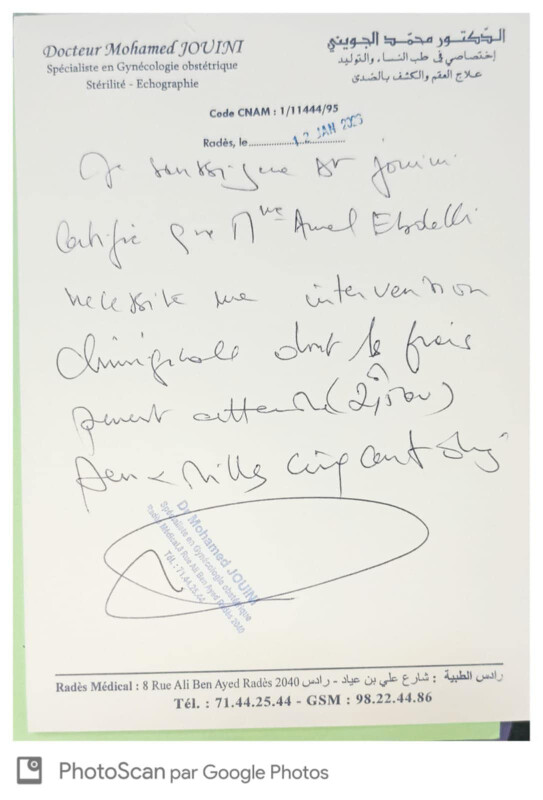 Docteur Mohamed JOUINI
Spécialiste en Gynécologie obstétrique
Stérilité - Echographie
الدّكتور محمّد الجويني
إختصاصي في طب النساء والتوليد
علاج العقم والكشف بالصدى
Code CNAM : 1/11444/95
Radès, le 12 JAN 2023
Je soussigné Dr Jouini
Certifie que Mme Amel
necessite une intervention
chirurgicale dont les frais
peuvent atteindre (2,500)
deux milles cinq cent
Dr Mohamed JOUINI
Spécialiste en Gynécologie obstétrique
Radès Médical, 8 Rue Ali Ben Ayed Radès 2040
Tél. : 71.44.25.44
Radès Médical : 8 Rue Ali Ben Ayed Radès 2040 رادس الطبية : شارع علي بن عياد - رادس
Tél. : 71.44.25.44 - GSM : 98.22.44.86
PhotoScan par Google Photos